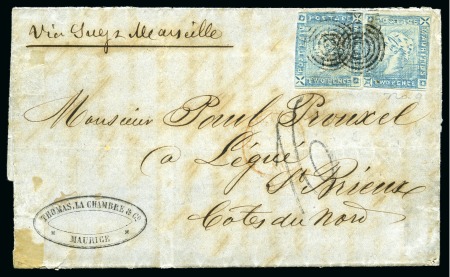 Via Suez Marseille
POSTAGE
TWO PENCE
TWO PENCE
Monsieur Paul Prouxel
à Légué
St. Brieux
Côtes du Nord
THOMAS, LA CHAMBRE & Co.
MAURICE